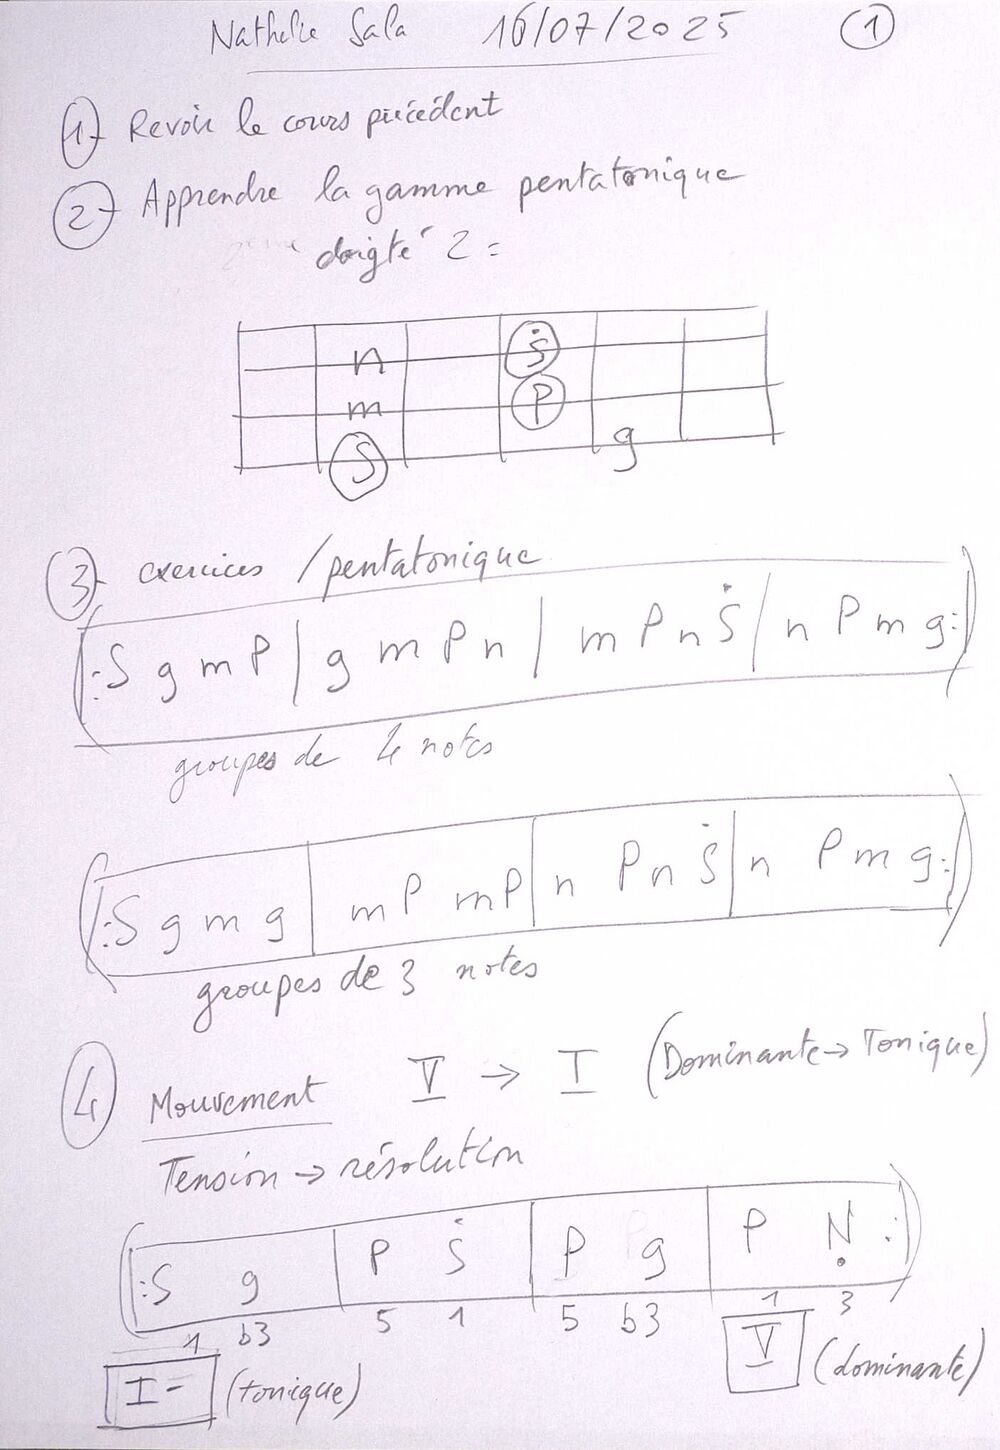 Nathalie Sala 16/07/2025 1
1- Revoir le cours précédent
2- Apprendre la gamme pentatonique
doigté 2 =
n Ṡ
m P
S g
3- exercices / pentatonique
(: S g m P | g m P n | m P n Ṡ | n P m g :)
groupes de 4 notes
(: S g m g | m P m P | n P n Ṡ | n P m g :)
groupes de 3 notes
4 Mouvement V → I (Dominante → Tonique)
Tension → résolution
(: S g | P Ṡ | P g | P Ṇ :)
1 b3 5 1 5 b3 1 3
I- (tonique) V (dominante)